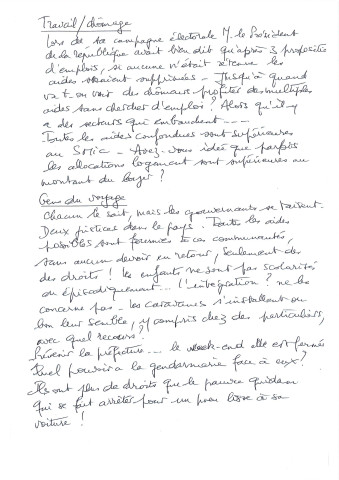 Travail / chômage
Lors de sa campagne électorale M. le Président
de la république avait bien dit qu'après 3 propositions
d'emplois, si aucune n'était retenue les
aides seraient supprimées - Jusqu'à quand
va t-on voir des chômeurs profiter des multiples
aides sans chercher d'emploi ? Alors qu'il y
a des secteurs qui embauchent ....
Toutes les aides confondues sont supérieures
au SMIC - Avez-vous idée que parfois
les allocations logement sont supérieures au
montant du loyer ?
Gens du voyage
Chacun le sait, mais les gouvernants se taisent.
Deux justices dans le pays. Toutes les aides
possibles sont fournies à ces communautés,
sans aucun devoir en retour, seulement des
des droits ! Les enfants ne sont pas scolarisés
ou épisodiquement ... l'intégration ? ne les
concerne pas - les caravanes s'installent ou
bon leur semble, y compris chez des particuliers,
avec quel recours ?
Prévenir la préfecture ... le week-end elle est fermée
Quel pouvoir a la gendarmerie face à eux ?
Ils ont plus de droits que le pauvre quidam
qui se fait arrêter pour un pneu lisse à sa
voiture !